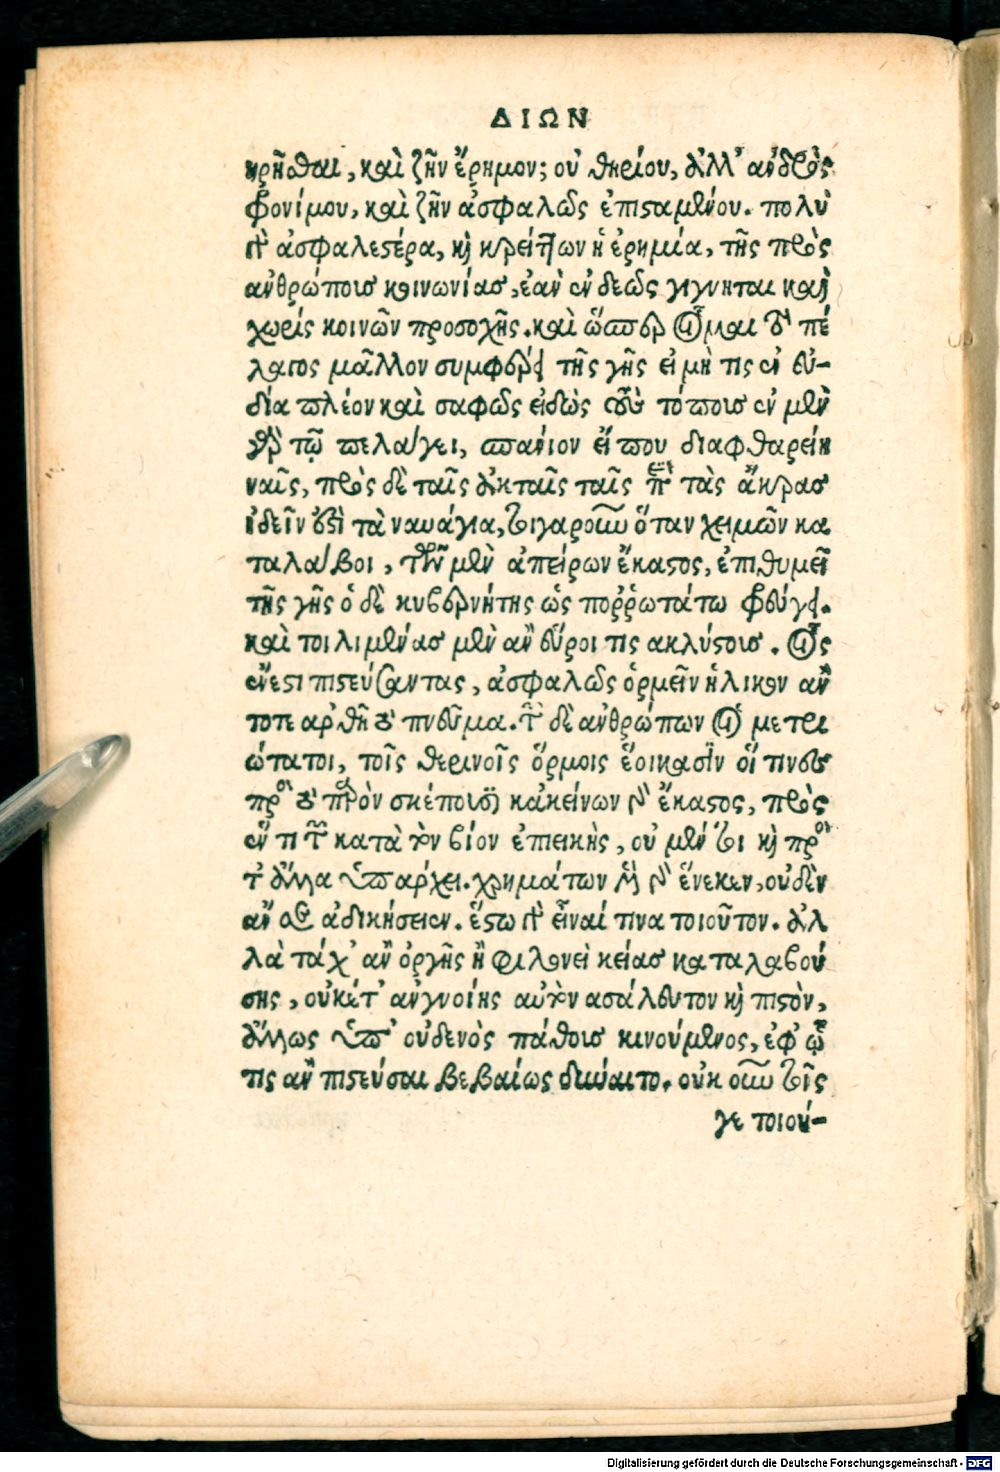 ΔΙΩΝ
κρῆσθαι, καὶ ζῆν ἔρημον; οὐ θηρίου, ἀλλ' ἀνδρὸς
φρονίμου, καὶ ζῆν ἀσφαλῶς ἐπισταμένου. πολὺ
γὰρ ἀσφαλεστέρα, καὶ κρείττων ἡ ἐρημία, τῆς πρὸς
ἀνθρώποις κοινωνίας, ἐὰν ἐνδεῶς γίγνηται καὶ
χωρὶς κοινῶν προσοχῆς. καὶ ὥσπερ οἶμαι τὸ πέ
λαγος μᾶλλον συμφέρει τῆς γῆς εἰ μή τις ἐν εὐ-
δία πλέον καὶ σαφῶς εἰδὼς τοὺς τόποις ἐν μὲν
γὰρ τῷ πελάγει, σπάνιον εἴπου διαφθαρείη
ναῦς, πρὸς δὲ ταῖς ἀκταῖς ταῖς τὰς ἄκρας
ἰδεῖν ἐστὶ τὰ ναυάγια, τοιγαροῦν ὅταν χειμῶν κα
ταλάβοι, τῶν μὲν ἀπείρων ἕκαστος, ἐπιθυμεῖ
τῆς γῆς ὁ δὲ κυβερνήτης ὡς πορρωτάτω φεύγει.
καὶ τοι λιμένας μὲν ἂν εὕροι τις ακλύστοις. οἷς
ἔνεστι πιστεύσαντας, ἀσφαλῶς ὁρμεῖν ἡλικον ἂν
τοτε ἀρθῇ τὸ πνεῦμα. τῶν δὲ ἀνθρώπων οἱ μετρι
ώτατοι, τοῖς θερινοῖς ὅρμοις ἐοίκασιν οἵ τινες
πρὸς τὸ παρὸν σκέπουσι κἀκείνων γὰρ ἕκαστος, πρὸς
ἕν τι τῶν κατὰ τὸν βίον ἐπιεικὴς, οὐ μέντοι καὶ πρὸς
τὰ ἄλλα ὑπάρχει. χρημάτων μὲν γὰρ ἕνεκεν, οὐδὲν
ἄν σε ἀδικήσειεν. ἔστω γὰρ εἶναί τινα τοιοῦτον. ἀλ
λὰ τάχ' ἂν ὀργῆς ἢ φιλονεικείας καταλαβού
σης, οὐκέτ' ἂν γνοίης αὐτὸν ασάλευτον καὶ πιστὸν,
ἄλλως ὑπ' οὐδενὸς πάθοις κινούμενος, ἐφ' ᾧ
τις ἂν πιστεύσαι βεβαίως δύναιτο. οὐκ οὖν τοῖς
γε τοιού-
Digitalisierung gefördert durch die Deutsche Forschungsgemeinschaft - DFG